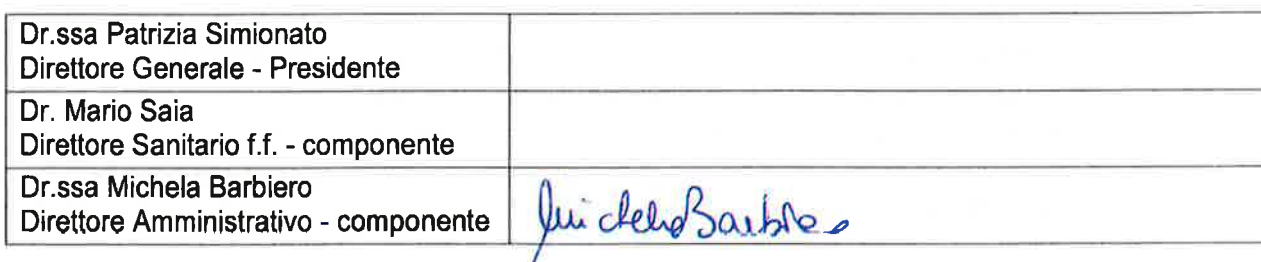 Dr.ssa Patrizia Simionato
Direttore Generale - Presidente
Dr. Mario Saia
Direttore Sanitario f.f. - componente
Dr.ssa Michela Barbiero
Direttore Amministrativo - componente
Michela Barbiero